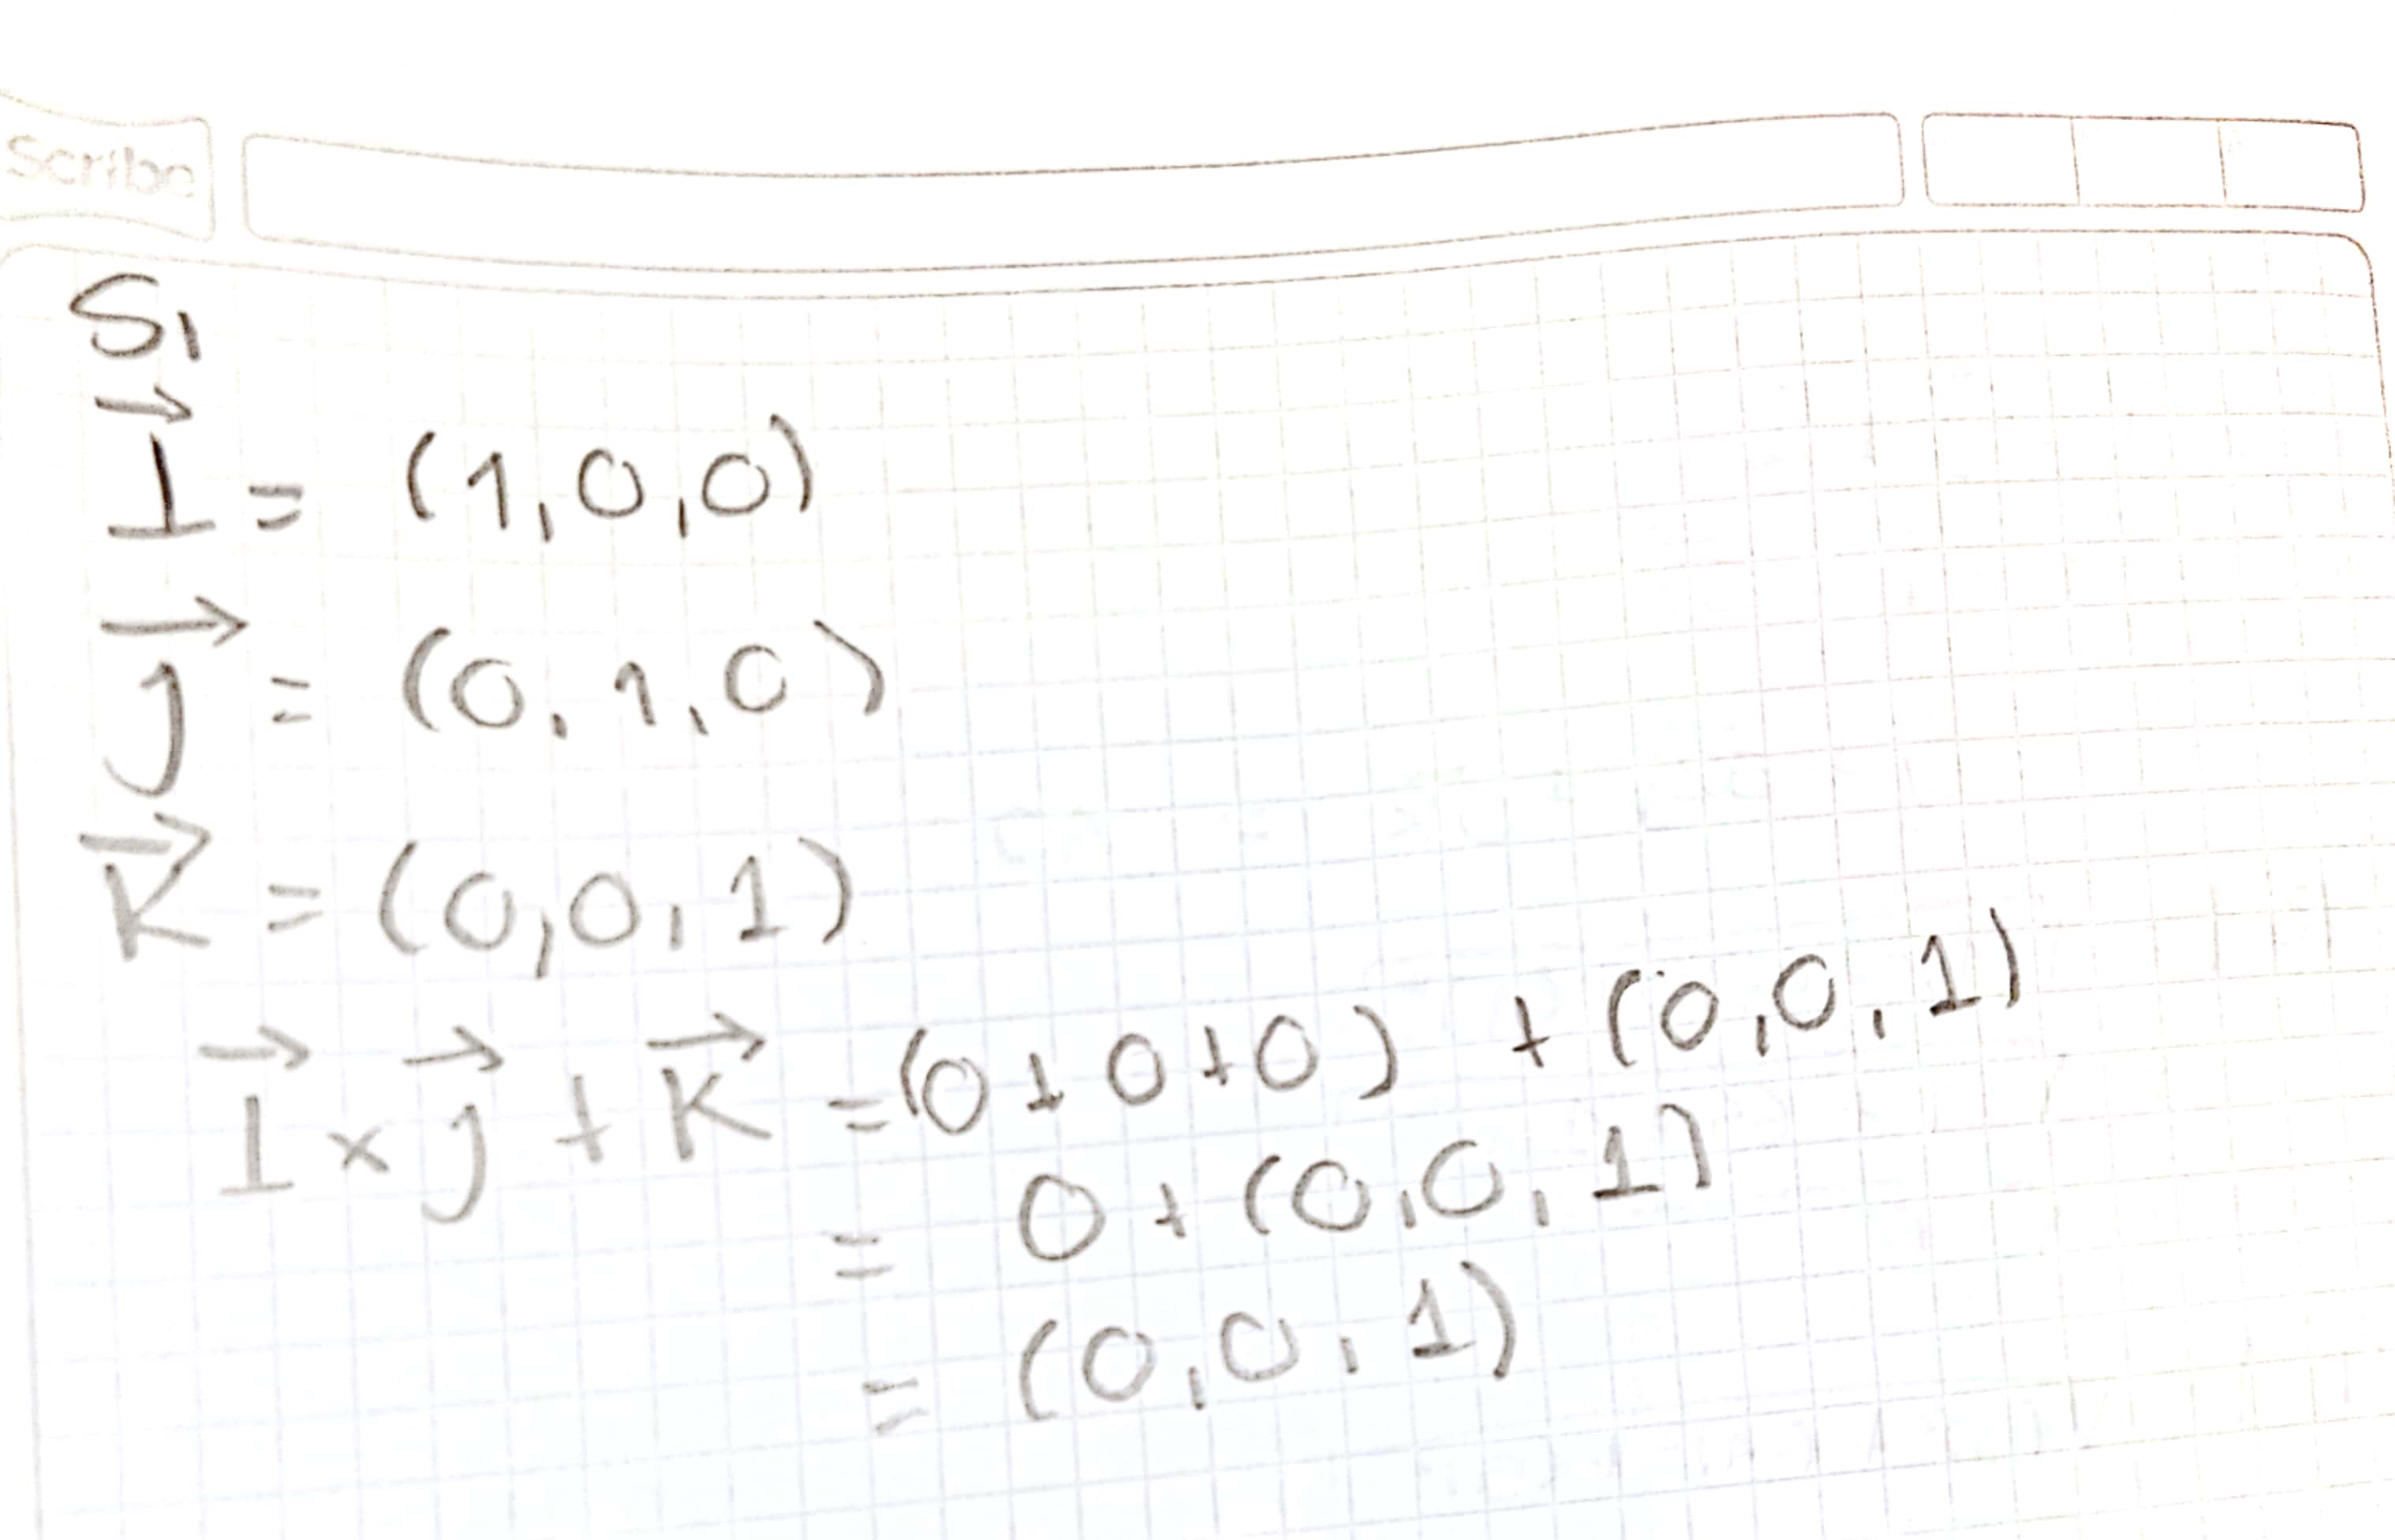 Scribe
S1
I⃗ = (1,0,0)
J⃗ = (0,1,0)
K⃗ = (0,0,1)
I⃗ × J⃗ + K⃗ = (0+0+0) + (0,0,1)
= 0 + (0,0,1)
= (0,0,1)